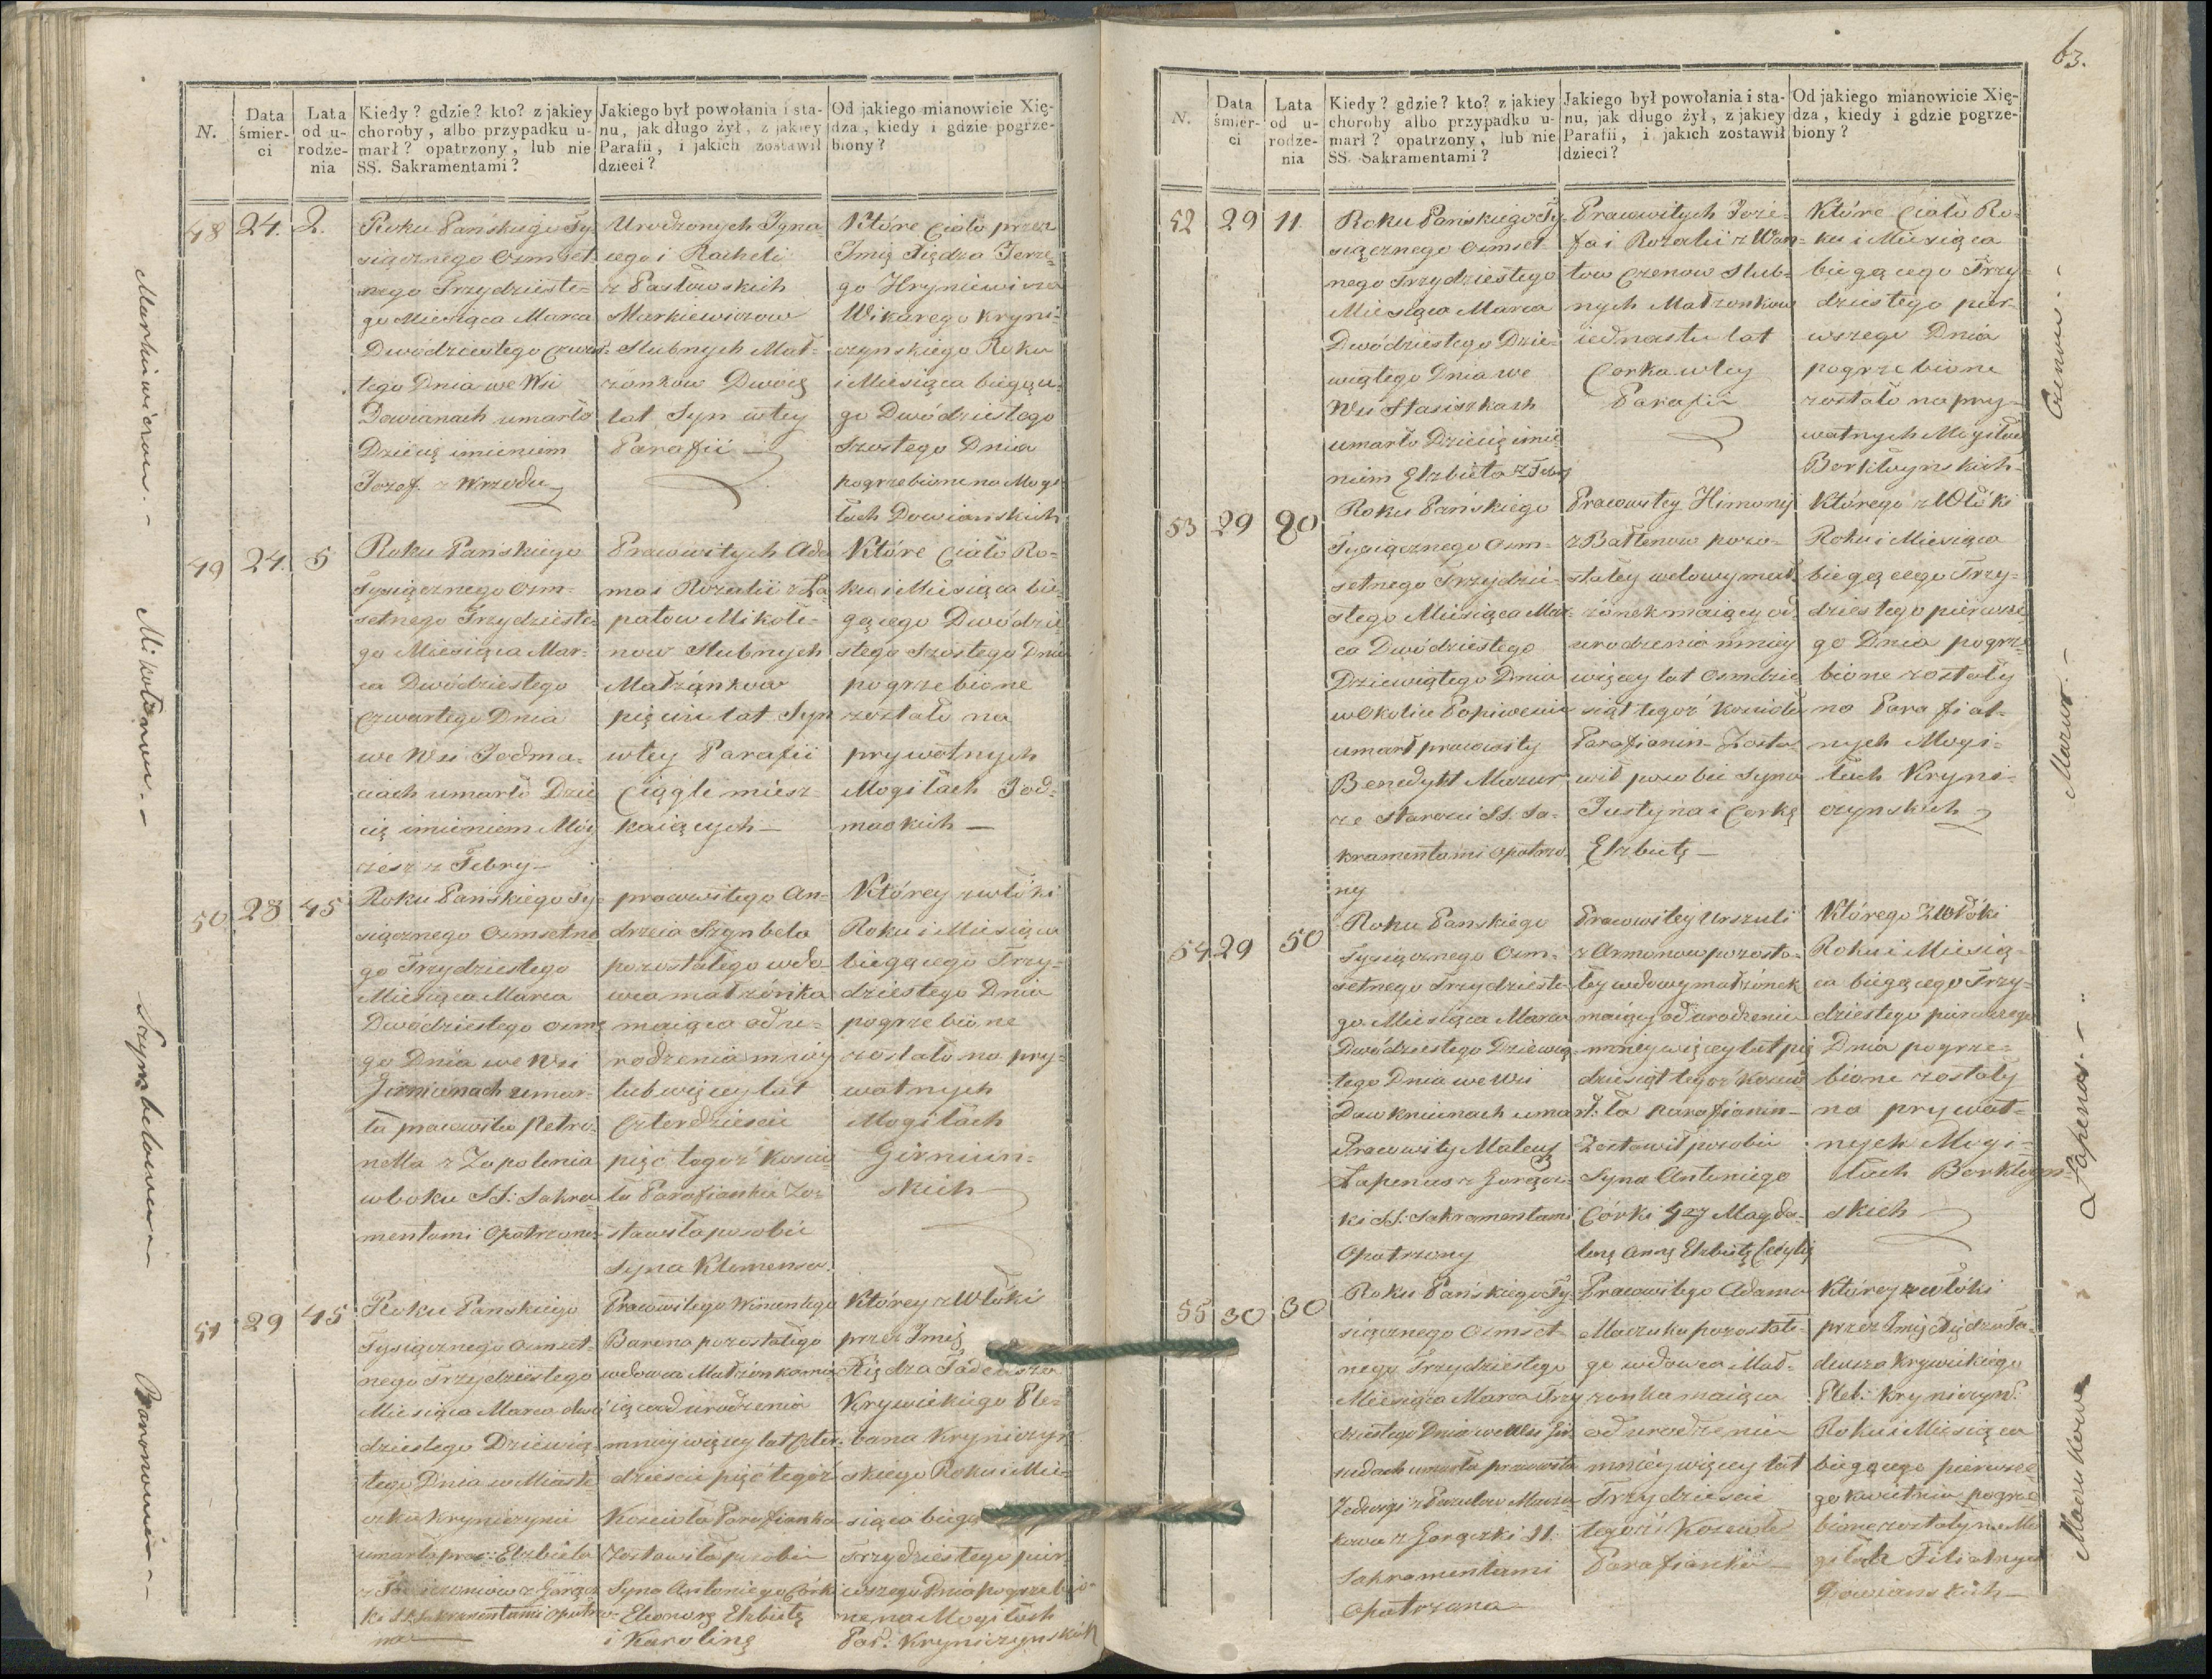 N.
Data śmier-
ci
Lata
od u-
rodze-
nia
Kiedy? gdzie? kto? z jakiey
choroby, albo przypadku u-
marł? opatrzony, lub nie
SS. Sakramentami?
Jakiego był powołania i sta-
nu, jak długo żył, z jakiey
Parafii, i jakich zostawił
dzieci?
Od jakiego mianowicie Xię-
dza, kiedy i gdzie pogrze-
biony?
48
24.
2.
Roku Pańskiego Ty-
siącznego Osmset-
nego Trzydzieste-
go Miesiąca Marca
Dwódziestego czwar-
tego Dnia we Wsi
Dowianach umarło
Dziecię imieniem
Jozef z Wrzodu
Urodzonych Igna-
cego i Racheli
z Pasłowskich
Markiewiczow
Slubnych Mał-
żonkow Dwóię
lat Syn wtey
Parafii
Które Ciało przez
Imię Xiędza Jerze-
go Hryniewicza
Wikarego Kryni-
czynskiego Roku
i Miesiąca biegące-
go Dwódziestego
Szostego Dnia
pogrzebione na Mogi-
łach Dowianskich
49
24.
5
Roku Pańskiego
Tysiącznego Osm-
setnego Trzydzieste-
go Miesiąca Mar-
ca Dwódziestego
Czwartego Dnia
we Wsi Jodma-
ciach umarło Dzie
cię imieniem Moy
zesz z Febry
Pracowitych Ada
ma i Rozalii z Ła-
patow Mikołe-
now Slubnych
Małżonkow
pięciu lat Syn
wtey Parafii
Ciągle miesz-
kaiących
Które Ciało Ro-
ku i Miesiąca bie-
gącego Dwódzie
stego Szostego Dnia
pogrzebione
zostało na
prywatnych
Mogiłach Jod-
mackich
50
28
45
Roku Pańskiego Ty-
siącznego Osmsetne
go Trzydziestego
Miesiąca Marca
Dwódziestego osme
go Dnia we Wsi
Girnianach umar-
ła pracowita Petro-
nella z Zapalenia
w boku SS: Sakra-
mentami Opatrzona
pracowitego An-
drzeia Szymbela
pozostałego wdo-
wca małżonka
maiąca od u-
rodzenia mniey
lub więcey lat
Czterdziescie
pięć tegoż Koscio
ła Parafianka Zo-
stawiła po sobie
Syna Klemensa.
Którey zwłoki
Roku i Miesiąca
biegącego Trzy-
dziestego Dnia
pogrzebione
zostało na pry-
watnych
Mogiłach
Girnian-
skich
51
29
45
Roku Pańskiego
Tysiącznego Osmset-
nego Trzydziestego
Miesiąca Marca dwó
dziestego Dziewią-
tego Dnia w Miaste
czku Kryniczynie
umarła prac: Elzbieta
ki SS. Sakramentami opatrzo-
na
Pracowitego Wincentego
Barona pozostałego
wdowca Małżonka ma
iąca od urodzenia
mniey więcey lat czter-
dziescie pięć tegoż
Koscioła Parafianka
Zostawiła po sobie
Syna Antoniego Córki
Eleonorę Elzbietę
i Karolinę
Którey zwłoki
przez Imię
Xiędza Tadeusza
Krywickiego Ple-
bana Kryniczyn
skiego Roku i Mie-
siąca biegą
Trzydziestego pier-
wszego Dnia pogrzebio-
ne na Mogiłach
Par: Kryniczynskich
Markiewiczow.
Mikołenow.
Szymbelowa
Baronowna
63.
N.
Data
śmier-
ci
Lata
od u-
rodze-
nia
Kiedy? gdzie? kto? z jakiey
choroby albo przypadku u-
marł? opatrzony, lub nie
SS. Sakramentami?
Jakiego był powołania i sta-
nu, jak długo żył, z jakiey
Parafii, i jakich zostawił
dzieci?
Od jakiego mianowicie Xię-
dza, kiedy i gdzie pogrze-
biony?
52
29
11
Roku Pańskiego Ty-
siącznego Osmset-
nego Trzydziestego
Miesiąca Marca
Dwódziestego Dzie-
wiątego Dnia we
Wsi Stasiszkach
umarło Dziecię imie
niem Elzbieta z Febry
Pracowitych Joze-
fa i Rozalii z Wan-
tow Czenow Slub-
nych Małżonkow
iednastu lat
Corka wtey
Parafii
Które Ciało Ro-
ku i Miesiąca
biegącego Trzy-
dziestego pier-
wszego Dnia
pogrzebione
zostało na pry-
watnych Mogiłach
Borkłoynskich
53
29
80
Roku Pańskiego
Tysiącznego Osm-
setnego Trzydzie-
stego Miesiąca Mar-
ca Dwódziestego
Dziewiątego Dnia
w Okolicy Popiwenie
umarł pracowity
Benedykt Mazur
ze starosci SS. Sa-
kramentami opatrzo-
ny
Pracowitey Himony
z Baltenow pozo-
stałey wdowy mał-
żonek maiący od
urodzenia mniey
więcey lat Osmdzie
siąt tegoż Koscioła
Parafianin Zosta-
wił po sobie Syna
Justyna i Corkę
Elzbietę
Którego zwłoki
Roku i Miesiąca
biegącego Trzy-
dziestego pierwsze
go Dnia pogrze-
bione zostały
na Parafial-
nych Mogi-
łach Kryni-
czynskich
54
29
50
Roku Pańskiego
Tysiącznego Osm-
setnego Trzydzieste
go Miesiąca Marca
Dwódziestego Dziewią-
tego Dnia we Wsi
Dawkniunach umarł
Pracowity Mateusz
Łapenas z Gorącz-
ki SS. Sakramentami
Opatrzony
Pracowitey Urszuli
z Armonow pozosta-
łey wdowy małżonek
maiący od urodzenia
mniey więcey lat pię
dziesiąt tegoż Koscio
ła parafianin
Zostawił po sobie
Syna Antoniego
Córki 4ry Magda-
lenę Annę Elzbietę Cecylię
Którego Zwłoki
Roku i Miesią-
ca biegącego Trzy-
dziestego pierwszego
Dnia pogrze-
bione zostały
na prywat-
nych Mogi-
łach Borkłoyn-
skich
55
30
30
Roku Pańskiego Ty-
siącznego Osmset-
nego Trzydziestego
Miesiąca Marca Trzy
dziestego Dnia we Wsi
umarła pracowita
kowa z Gorączki SS.
Sakramentami
Opatrzona
Pracowitego Adama
Maczuka pozostałe-
go wdowca Mał-
żonka maiąca
od urodzenia
mniey więcey lat
Trzydziescie
tegoż Koscioła
Parafianka
Którey zwłoki
przez Imię Xiędza Ta-
deusza Krywickiego
Pleb: Kryniczyn:
Roku i Miesiąca
biegącego pierwsze
go kwietnia pogrze
bione zostały na Mo
giłach Filialnych
Dowianskich
Czenow.
Mazur.
Łapenas.
Maczukowa